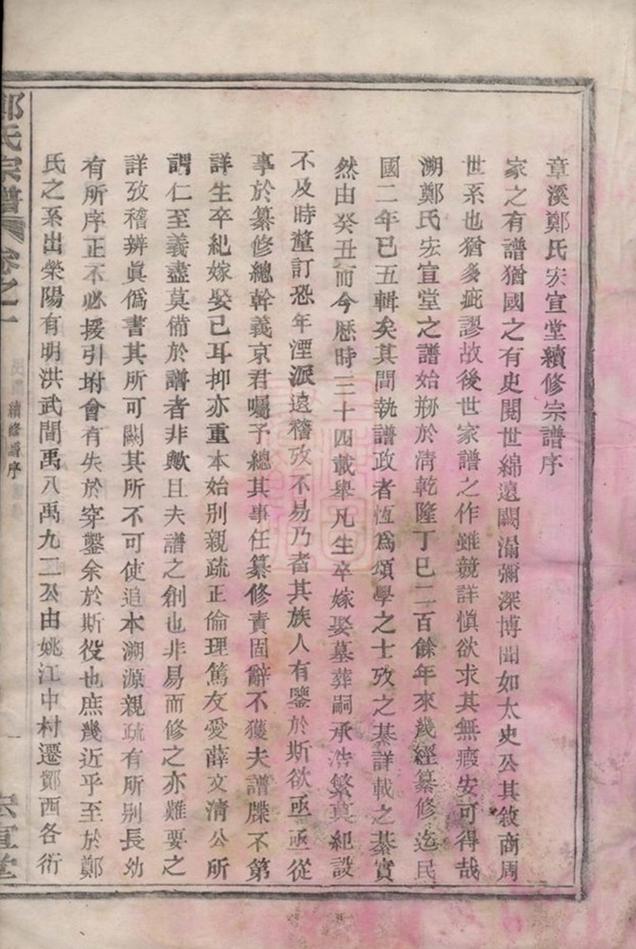 章溪鄭氏宏宣堂續修宗譜序
家之有譜猶國之有史閱世綿遠闕漏彌深博聞如太史公其敘商周
世系也猶多疵謬故後世家譜之作雖競詳慎欲求其無瑕安可得哉
溯鄭氏宏宣堂之譜始刱於清乾隆丁巳二百餘年來幾經纂修迄民
國二年已五輯矣其間執譜政者恆爲碩學之士攷之綦詳載之綦實
然由癸丑而今歷時三十四載舉凡生卒嫁娶墓葬嗣承浩繁莫紀設
不及時釐訂恐年湮派遠稽攷不易乃者其族人有鑒於斯欲亟亟從
事於纂修總幹義京君囑予總其事任纂修責固辭不獲夫譜牒不第
詳生卒紀嫁娶已耳抑亦重本始別親疏正倫理篤友愛薛文清公所
謂仁至義盡莫備於譜者非歟且夫譜之創也非易而修之亦難要之
詳攷稽辨眞僞書其所可闕其所不可使追本溯源親疏有所別長幼
有所序正不必援引坿會有失於穿鑿余於斯役也庶幾近乎至於鄭
氏之系出滎陽有明洪武間禹八禹九二公由姚江中村遷鄞西各衍
鄭氏宗譜
卷之一
續修譜序
一
宏宣堂